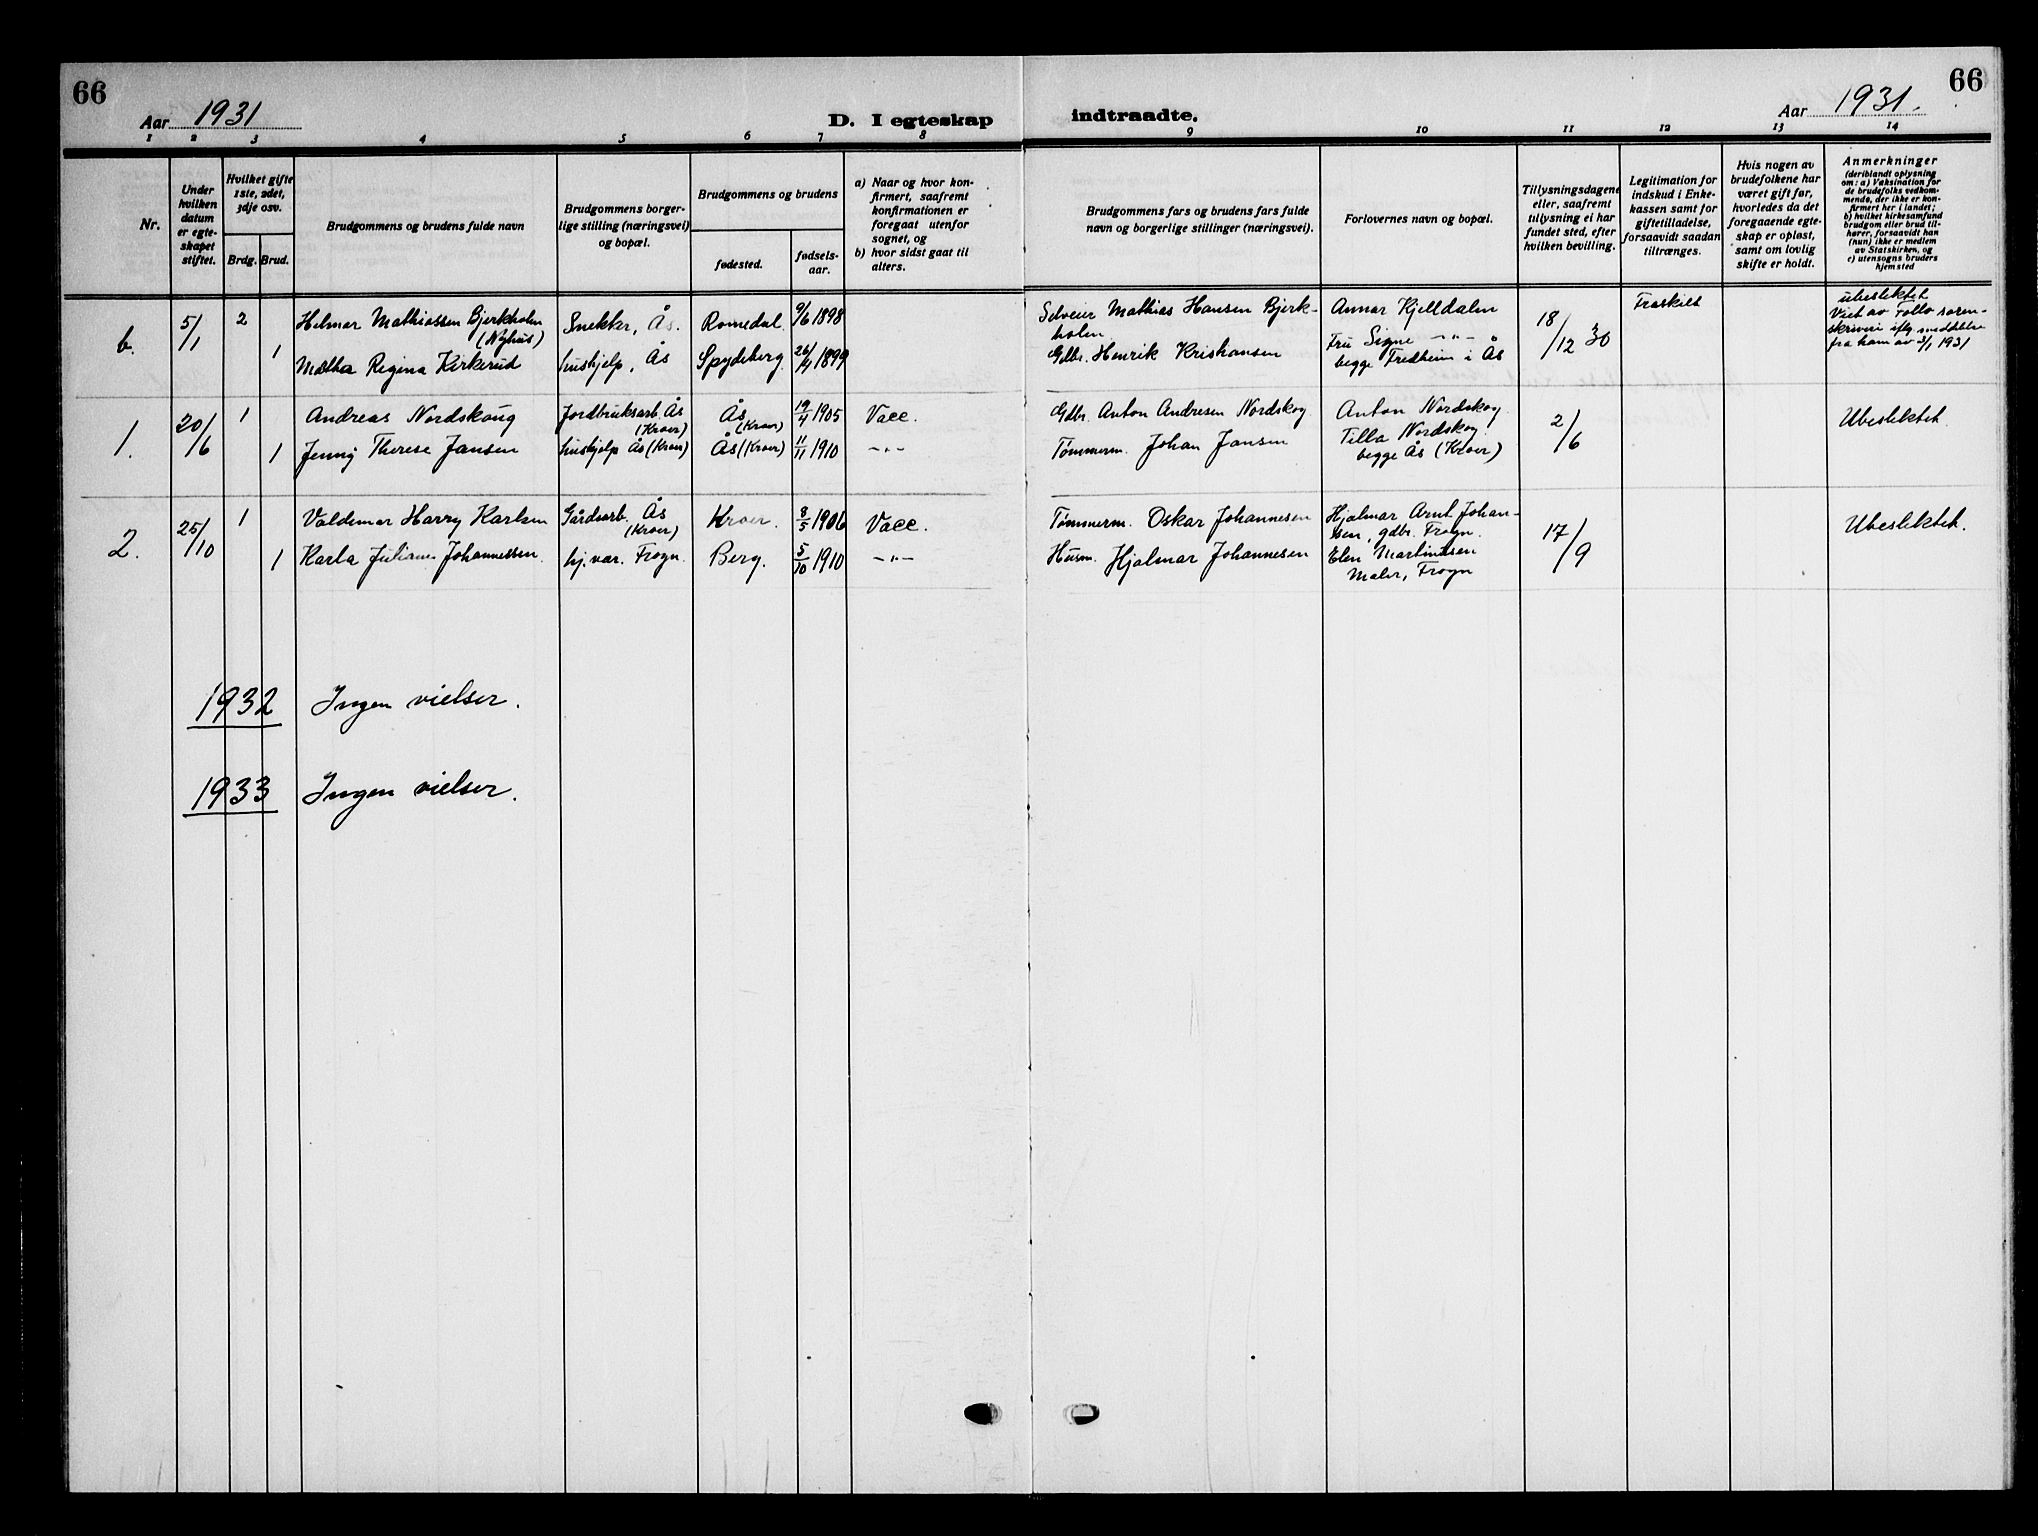 66
Aar 1931
D. I egteskap
indtraadte.
Aar 1931.
66
1 2 3 4 5 6 7 8 9 10 11 12 13 14
Nr.
Under
hvilken
datum
er egte-
skapet
stiftet.
Hvilket gifte
1ste, 2det,
3dje osv.
Brdg. Brud.
Brudgommens og brudens fulde navn
Brudgommens borger-
lige stilling (næringsvei)
og bopæl.
Brudgommens og brudens
fødested.
fødsels-
aar.
a) Naar og hvor kon-
firmert, saafremt
konfirmationen er
foregaat utenfor
sognet, og
b) hvor sidst gaat til
alters.
Brudgommens fars og brudens fars fulde
navn og borgerlige stillinger (næringsvei).
Forlovernes navn og bopæl.
Tillysningsdagene
eller, saafremt
tillysning ei har
fundet sted, efter
hvilken bevilling.
Legitimation for
indskud i Enke-
kassen samt for
giftetilladelse,
forsaavidt saadan
tiltrænges.
Hvis nogen av
brudefolkene har
været gift før,
hvorledes da det
foregaaende egte-
skap er opløst,
samt om lovlig
skifte er holdt.
Anmerkninger
(deriblandt oplysning
om: a) Vaksination for
de brudefolks vedkom-
mende, der ikke er kon-
firmert her i landet;
b) hvilket kirkesamfund
brudgom eller brud til-
hører, forsaavidt han
(hun) ikke er medlem
av Statskirken, og
c) utensogns bruders
hjemsted
b. 5/1 2 Helmer Mathiassen Bjerkholen
(Nyhus)
Snekker, Ås. Romedal. 9/6 1898
Selveier Mathias Hansen Bjerk-
holen
Annar Kjelldalen
18/12 30
Fraskilt
ubeslektet
Viet av Follo soren-
skriveri iflg. meddelelse
fra ham av 5/1 1931
1 Mætha Regina Kirkerud
hushjelp, Ås Spydeberg. 26/4 1899
Gdbr. Henrik Kristiansen
Fru Signe -"-
begge Fredheim i Ås
1. 20/6 1 Andreas Nordskoug
Jordbruksarb. Ås
(Kroer)
Ås
(Kroer)
19/4 1905 Vacc.
Gdbr. Anton Andresen Nordskog
Anton Nordskog
2/6
Ubeslektet.
1 Jenny Therese Jansen
hushjelp Ås (Kroer) Ås (Kroer) 11/11 1910 -"-
Tømmerm. Johan Jansen
Tilla Nordskog
begge Ås (Kroer)
2. 25/10 1 Valdemar Harry Karlsen
Gårdsarb. Ås
(Kroer)
Kroer. 8/5 1906 Vacc.
Tømmerm. Oskar Johannesen
Hjalmar Arnt Johan-
sen, gdbr. Frogn.
17/9
Ubeslektet.
1 Karla Juliane Johannessen.
hj. vær. Frogn. Berg. 5/10 1910 -"-
Husm. Hjalmar Johannesen
Elen Martinsen
Maler, Frogn
1932 Ingen vielser.
1933 Ingen vielser.